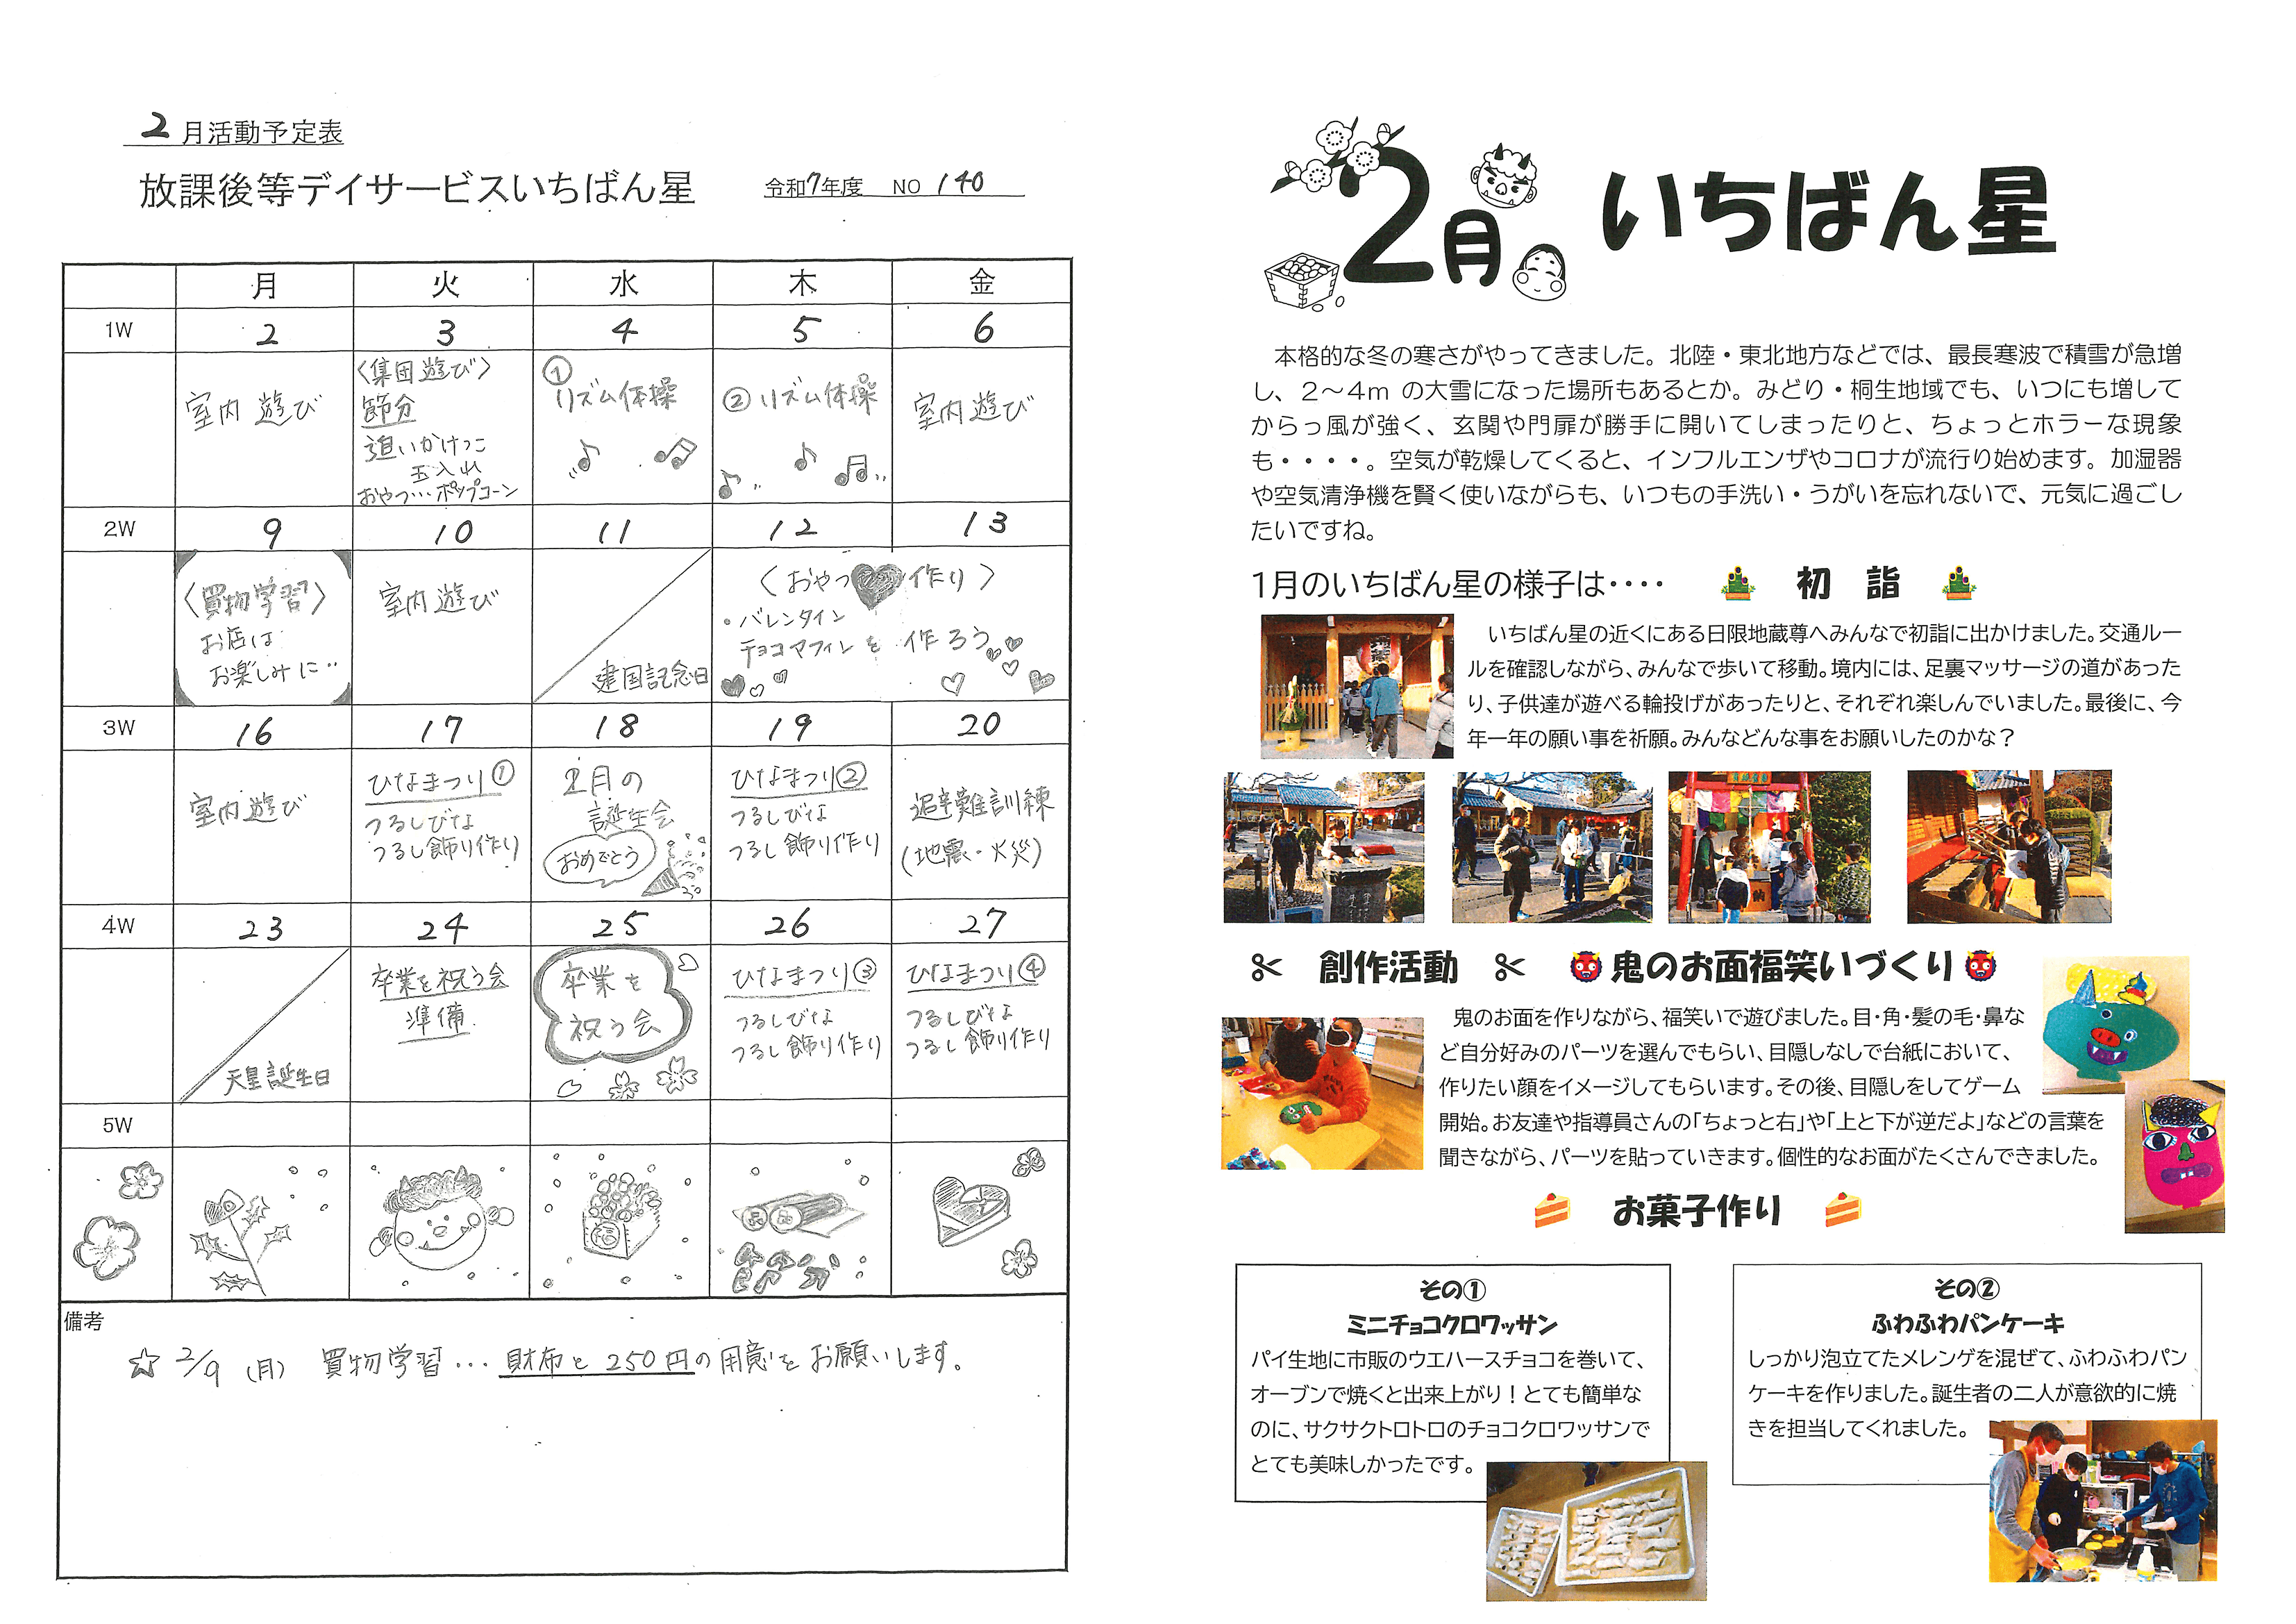 2月活動予定表
放課後等デイサービスいちばん星　令和7年度　NO 140
月 火 水 木 金
1W 2 3 4 5 6
室内遊び
〈集団遊び〉
節分
追いかけっこ
玉入れ
おやつ…ポップコーン
①
リズム体操
②リズム体操
室内遊び
2W 9 10 11 12 13
〈買物学習〉
お店は
お楽しみに‥
室内遊び
建国記念日
〈おやつ作り〉
・バレンタイン
チョコマフィンを作ろう
3W 16 17 18 19 20
室内遊び
ひなまつり①
つるしびな
つるし飾り作り
2月の
誕生会
おめでとう
ひなまつり②
つるしびな
つるし飾り作り
避難訓練
(地震・火災)
4W 23 24 25 26 27
天皇誕生日
卒業を祝う会
準備
卒業を
祝う会
ひなまつり③
つるしびな
つるし飾り作り
ひなまつり④
つるしびな
つるし飾り作り
5W
福
備考
☆ 2/9(月) 買物学習… 財布と250円の用意をお願いします。
2月 いちばん星
本格的な冬の寒さがやってきました。北陸・東北地方などでは、最長寒波で積雪が急増
し、2～4mの大雪になった場所もあるとか。みどり・桐生地域でも、いつにも増して
からっ風が強く、玄関や門扉が勝手に開いてしまったりと、ちょっとホラーな現象
も・・・・。空気が乾燥してくると、インフルエンザやコロナが流行り始めます。加湿器
や空気清浄機を賢く使いながらも、いつもの手洗い・うがいを忘れないで、元気に過ごし
たいですね。
1月のいちばん星の様子は‥‥　初　詣
いちばん星の近くにある日限地蔵尊へみんなで初詣に出かけました。交通ルー
ルを確認しながら、みんなで歩いて移動。境内には、足裏マッサージの道があった
り、子供達が遊べる輪投げがあったりと、それぞれ楽しんでいました。最後に、今
年一年の願い事を祈願。みんなどんな事をお願いしたのかな？
✂　創作活動　✂　👹鬼のお面福笑いづくり👹
鬼のお面を作りながら、福笑いで遊びました。目・角・髪の毛・鼻な
ど自分好みのパーツを選んでもらい、目隠しなしで台紙において、
作りたい顔をイメージしてもらいます。その後、目隠しをしてゲーム
開始。お友達や指導員さんの「ちょっと右」や「上と下が逆だよ」などの言葉を
聞きながら、パーツを貼っていきます。個性的なお面がたくさんできました。
🍰　お菓子作り　🍰
その①
ミニチョコクロワッサン
パイ生地に市販のウエハースチョコを巻いて、
オーブンで焼くと出来上がり！とても簡単な
のに、サクサクトロトロのチョコクロワッサンで
とても美味しかったです。
その②
ふわふわパンケーキ
しっかり泡立てたメレンゲを混ぜて、ふわふわパン
ケーキを作りました。誕生者の二人が意欲的に焼
きを担当してくれました。